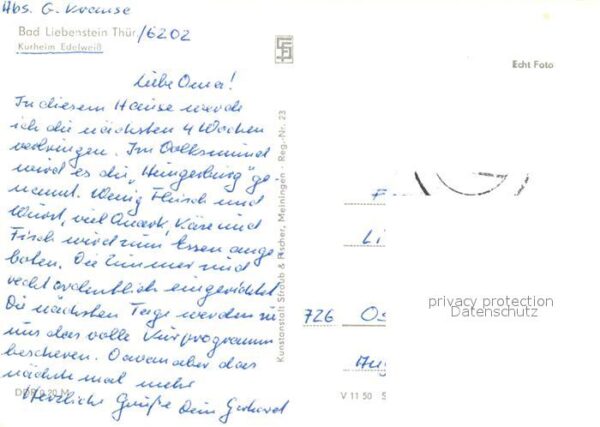 Abs. G. Krause
Bad Liebenstein Thür/6202
Kurheim Edelweiß
Echt Foto
Liebe Oma!
In diesem Hause werde
ich die nächsten 4 Wochen
verbringen. Im Volksmund
wird es die „Hungerburg" ge-
nannt. Wenig Fleisch und
Wurst, viel Quark, Käse und
Fisch wird zum Essen ange-
boten. Die Zimmer sind
recht ordentlich eingerichtet.
Die nächsten Tage werden
uns das volle Kurprogramm
bescheren. Davon aber das
nächste mal mehr
Herzliche Grüße Dein Gerhard
DDR 0,20 M
Kunstanstalt Straub & Fischer, Meiningen - Reg.-Nr. 23
Li
726 Os
privacy protection
Datenschutz
Aug
V 11 50